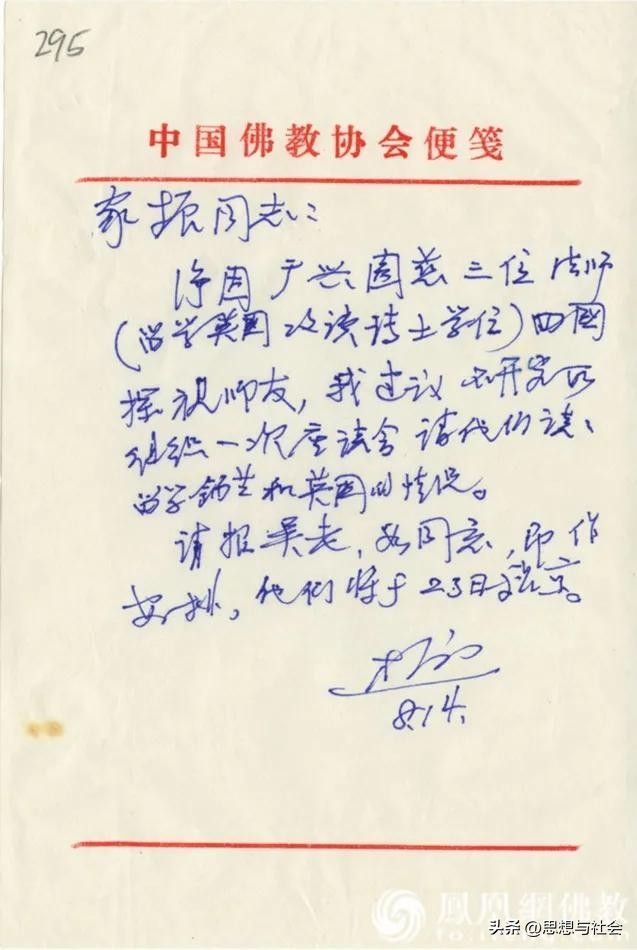 295
中国佛教协会便笺
家振同志：
净因广兴圆慈三位法师
（留学英国攻读博士学位）回国
探视师友，我建议研究所
组织一次座谈会请他们谈谈
留学锡兰和英国的情况。
请报吴老，如同意，即作
安排，他们将于23日离京。
8.14.
凤凰网佛教
头条@思想与社会